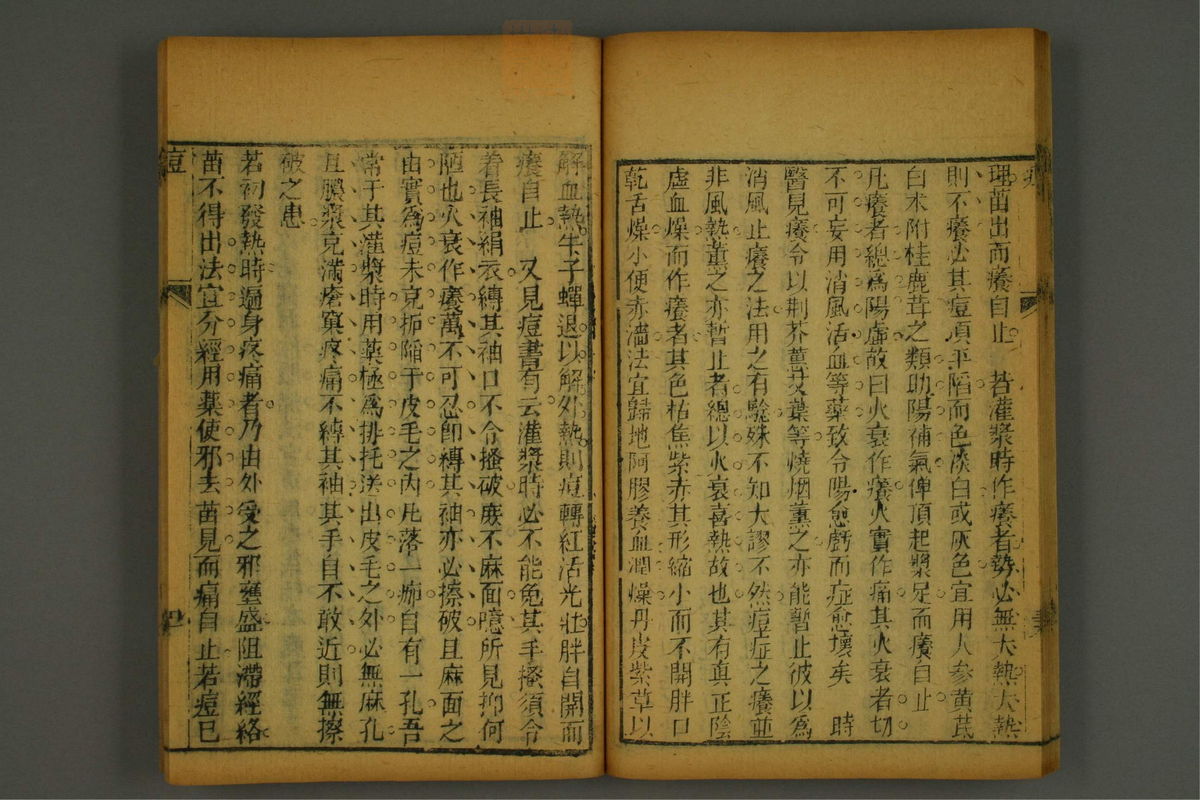 理苗出而癢自止　若灌漿時作癢者勢必無大熱大熱
則不癢必其痘頂平陷而色淡白或灰色宜用人參黃芪
白朮附桂鹿茸之類助陽補氣俾頂起漿足而癢自止
凡癢者總爲陽虛故曰火衰作癢火實作痛其火衰者切
不可妄用消風活血等藥致令陽愈虧而症愈壞矣　時
醫見癢令以荆芥薑艾葉等燒烟薰之亦能暫止彼以爲
消風止癢之法用之有驗殊不知大謬不然痘症之癢並
非風熱薰之亦暫止者總以火衰喜熱故也其有真正陰
虛血燥而作癢者其色枯焦紫赤其形縮小而不開胖口
乾舌燥小便赤澁法宜歸地阿膠養血潤燥丹皮紫草以
解血熱牛子蟬退以解外熱則痘轉紅活光壯胖自開而
癢自止　又見痘書有云灌漿時必不能免其手搔須令
着長袖絹衣縛其袖口不令搔破庶不麻面臆所見抑何
陋也火衰作癢萬不可忍卽縛其袖亦必擦破且麻面之
由實為痘未克拆陷于皮毛之內凡落一痂自有一孔吾
常于其灌漿時用藥極爲排托送出皮毛之外必無麻孔
且膿漿克滿瘡窠疼痛不縛其袖其手自不敢近則無擦
破之患
若初發熱時遍身疼痛者乃由外受之邪壅盛阻滯經絡
苗不得出法宜分經用藥使邪去苗見而痛自止若痘已
痘
四